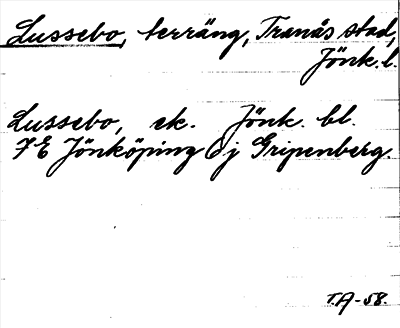 Lussebo, terräng, Tranås stad,
Jönk. l.
Lussebo, ek. Jönk. bl.
7E Jönköping 0j Gripenberg.
T.A-58.